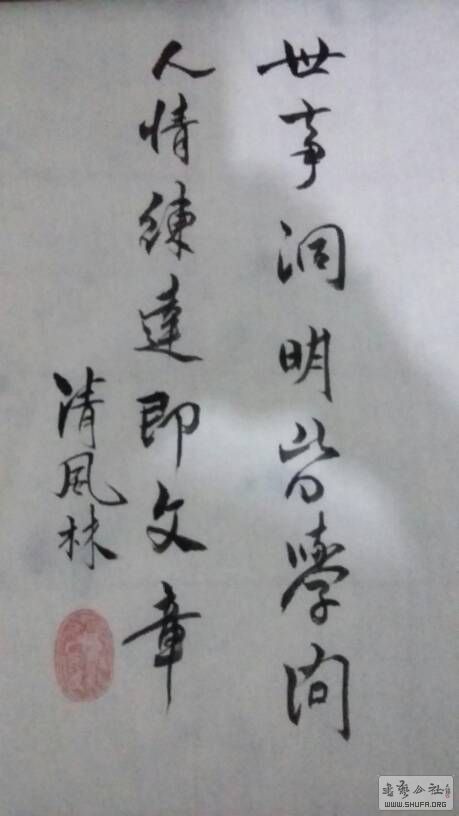 世事洞明皆學问
人情練達即文章
清风林
書法公社
WWW.SHUFA.ORG